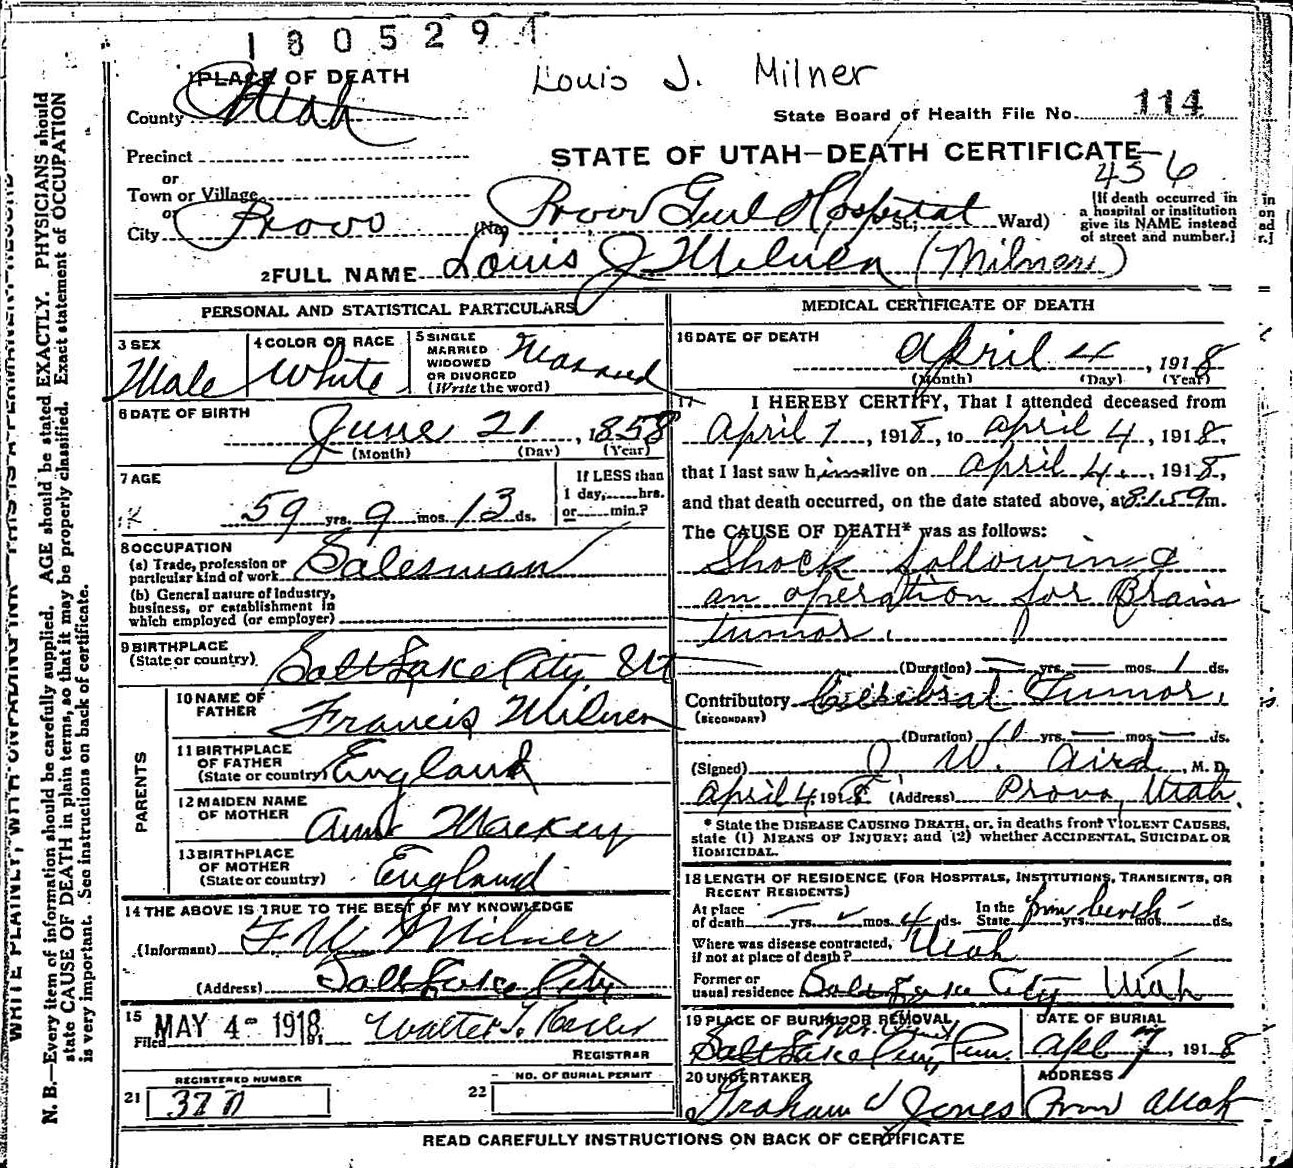 1805294
Louis J. Milner
1 PLACE OF DEATH
County Utah
State Board of Health File No. 114
Precinct
STATE OF UTAH—DEATH CERTIFICATE
456
or
Town or Village
or
City Provo (No. Provo Genl Hospital St.; Ward)
[If death occurred in
a hospital or institution
give its NAME instead
of street and number.]
2 FULL NAME Louis J Milner (Milner)
PERSONAL AND STATISTICAL PARTICULARS
3 SEX
Male
4 COLOR OR RACE
White
5 SINGLE
MARRIED
WIDOWED
OR DIVORCED
(Write the word)
Married
6 DATE OF BIRTH
June 21, 1858
(Month) (Day) (Year)
7 AGE
59 yrs. 9 mos. 13 ds.
If LESS than
1 day, hrs.
or min.?
8 OCCUPATION
(a) Trade, profession or
particular kind of work Salesman
(b) General nature of industry,
business, or establishment in
which employed (or employer)
9 BIRTHPLACE
(State or country) Salt Lake City Ut
PARENTS
10 NAME OF
FATHER Francis Milner
11 BIRTHPLACE
OF FATHER
(State or country) England
12 MAIDEN NAME
OF MOTHER Ann Mackey
13 BIRTHPLACE
OF MOTHER
(State or country) England
14 THE ABOVE IS TRUE TO THE BEST OF MY KNOWLEDGE
(Informant) F W Milner
(Address) Salt Lake City
15
Filed MAY 4 - 1918, 191
Walter T.
REGISTRAR
REGISTERED NUMBER
21
NO. OF BURIAL PERMIT
22
MEDICAL CERTIFICATE OF DEATH
16 DATE OF DEATH
April 4, 1918
(Month) (Day) (Year)
17 I HEREBY CERTIFY, That I attended deceased from
April 1, 1918, to April 4, 1918,
that I last saw him alive on April 4, 1918,
and that death occurred, on the date stated above, at m.
The CAUSE OF DEATH* was as follows:
Shock following
an operation for Brain
tumor.
(Duration) — yrs. — mos. 1 ds.
Contributory Cerebral Tumor.
(SECONDARY)
(Duration) 10 yrs. — mos. — ds.
(Signed) J W. Aird, M. D.
April 4, 1918 (Address) Provo, Utah.
* State the DISEASE CAUSING DEATH, or, in deaths from VIOLENT CAUSES,
state (1) MEANS OF INJURY; and (2) whether ACCIDENTAL, SUICIDAL OR
HOMICIDAL.
18 LENGTH OF RESIDENCE (FOR HOSPITALS, INSTITUTIONS, TRANSIENTS, OR
RECENT RESIDENTS)
At place
of death — yrs. mos. 4 ds. In the
State from birth yrs. mos. ds.
Where was disease contracted,
if not at place of death? Utah
Former or
usual residence Salt Lake City Utah
19 PLACE OF BURIAL OR REMOVAL
Salt Lake City
DATE OF BURIAL
Apl 7, 1918
20 UNDERTAKER
Graham & Jones
ADDRESS
Provo Utah
READ CAREFULLY INSTRUCTIONS ON BACK OF CERTIFICATE
WRITE PLAINLY, WITH UNFADING INK—THIS IS A PERMANENT RECORD
N. B.—Every item of information should be carefully supplied. AGE should be stated EXACTLY. PHYSICIANS should
state CAUSE OF DEATH in plain terms, so that it may be properly classified. Exact statement of OCCUPATION
is very important. See instructions on back of certificate.